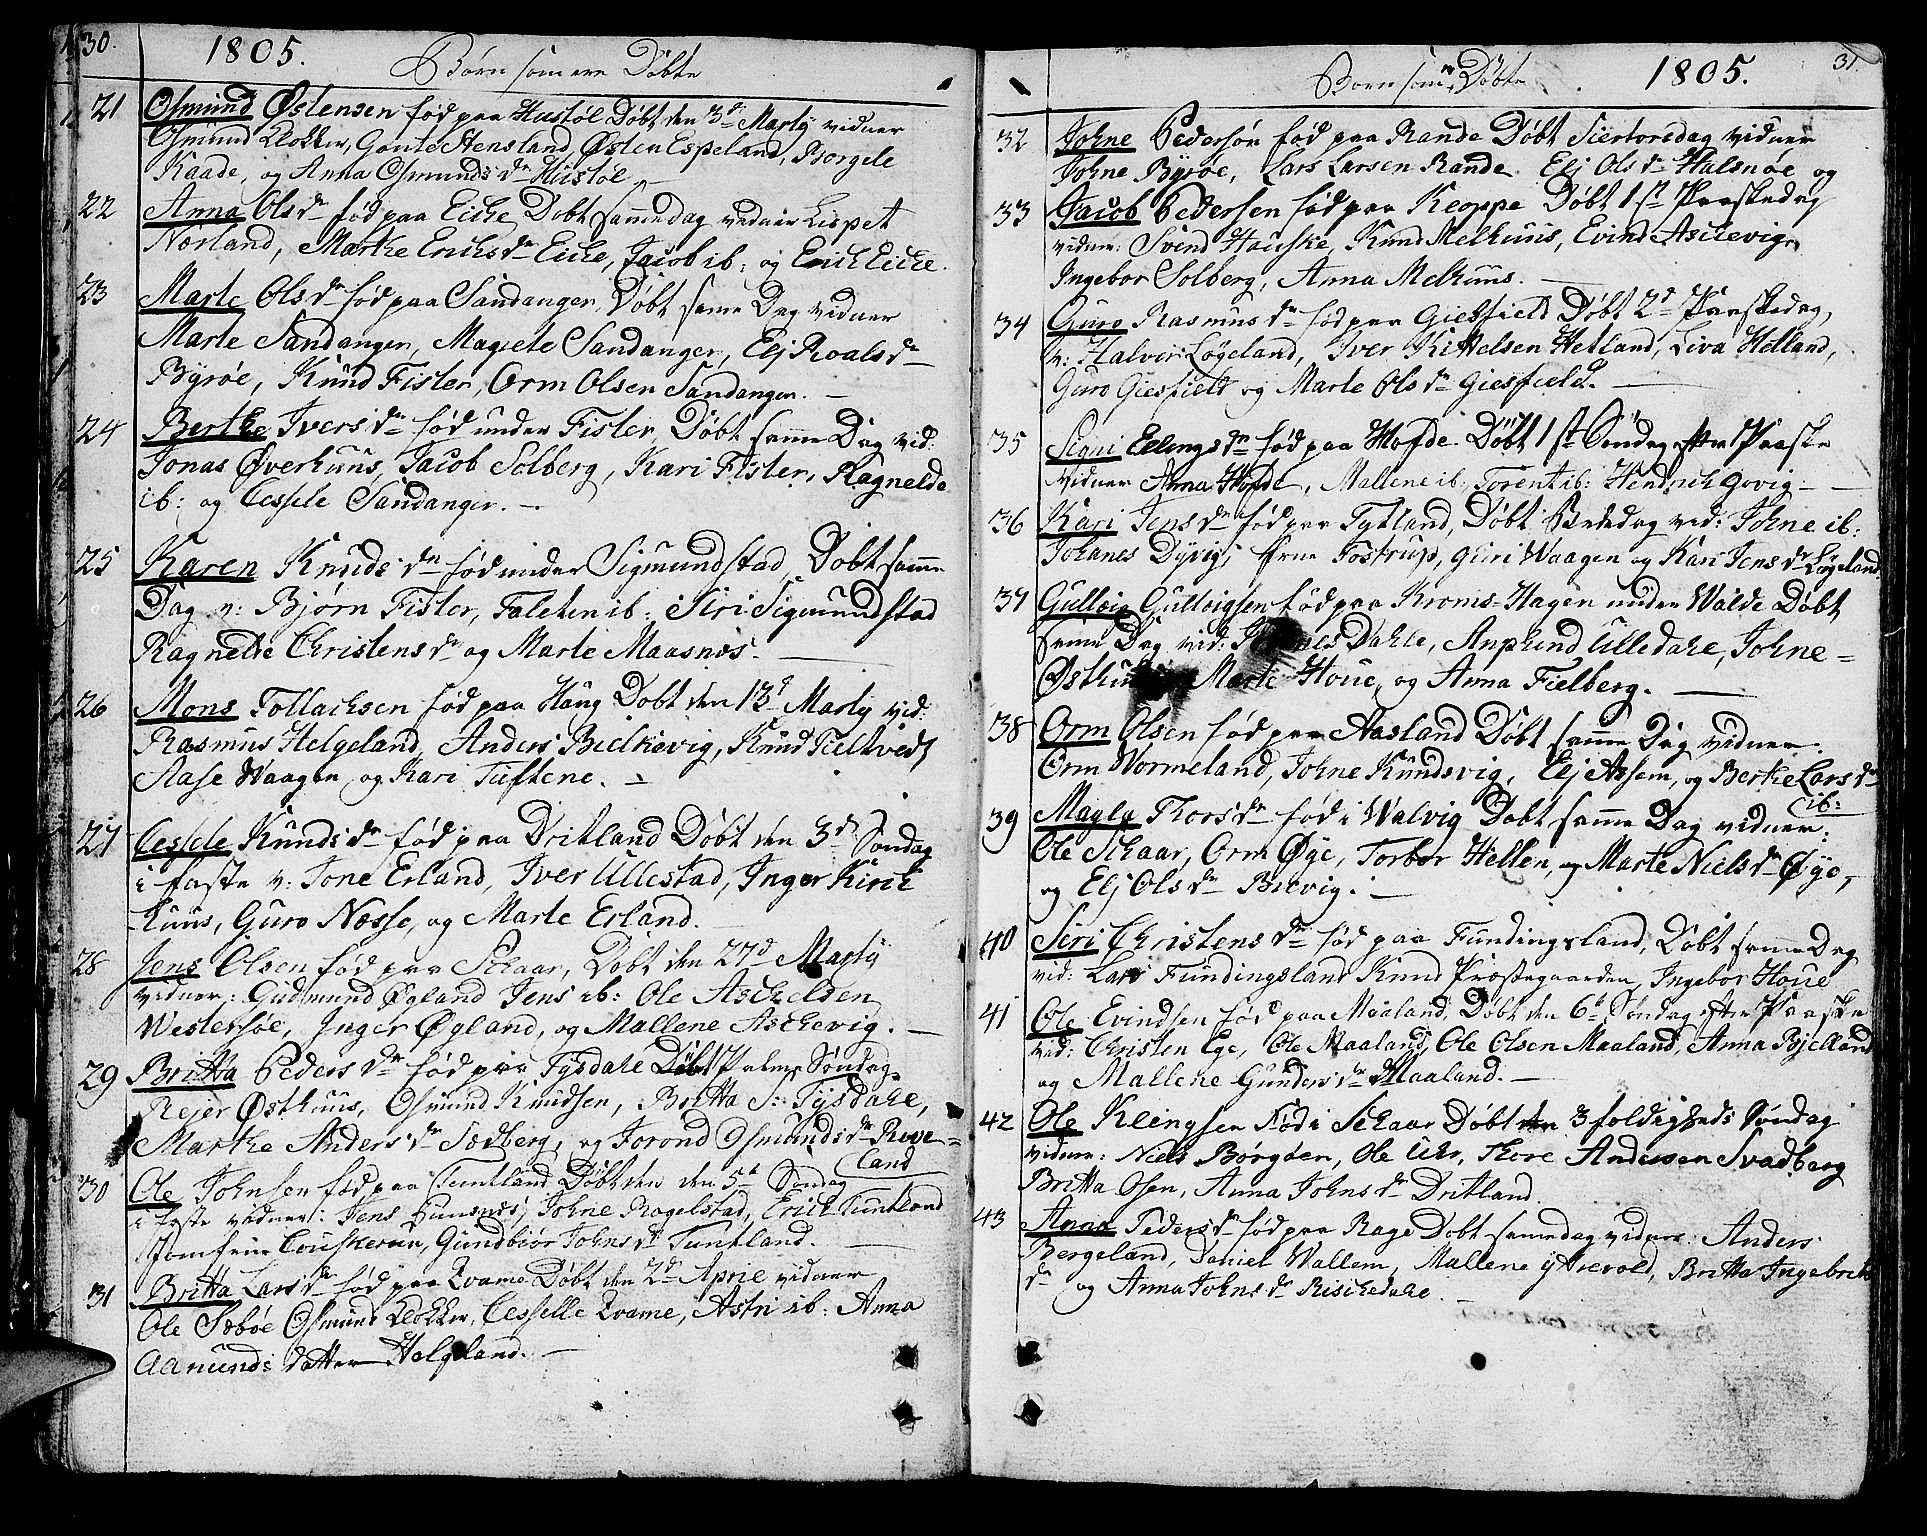 30.
1805.
Børn som ere Døbte
21 Osmund Østensen fød paa Hustøl Døbt den 3d Martÿ vidner
Osmund Klokker, Gaute Stensland, Østen Espeland, Borgele
Kaade, og Anna Osmunds dr Hustøl
22 Anna Ols dr fød paa Eiche Døbt samme dag vidner Lispet
Nørland, Marthe Erichs dr Eiche, Jacob ib: og Erich Eiche.
23 Marte Ols dr fød paa Sandanger, Døbt samme Dag vidner
Marte Sandanger, Magrete Sandanger, Elj Roals dr
Byrøe, Knud Fister, Orm Olsen Sandanger. —
24 Berthe Ivers dr fød under Fister, Døbt samme Dag vid:
Jonas Øverhuus, Jacob Solberg, Kari Fister, Ragnelde
ib: og Cessele Sandanger. —
25 Karen Knuds dr fød under Sigmundstad, Døbt samme
Dag v: Bjørn Fister, Faleten ib: Siri Sigmundstad
Ragnelle Christens dr og Marte Maasnæs. —
26 Mons Tollachsen fød paa Haug Døbt den 13d Martÿ vid:
Rasmus Helgeland, Anders Bielkevig, Knud Tieltvedt
Aase Waagen, og Kari Tuftene. —
27 Cessele Knuds dr fød paa Dritland Døbt den 3d Søndag
i faste v: Tone Erland, Iver Ullestad, Inger Kirck
huus, Guro Næsse, og Marte Erland.
28 Jens Olsen fød paa Schaar, Døbt den 27d Martÿ
vidner: Gudmund Øgland Jens ib: Ole Aschelsen
Westersøe, Inger Øgland, og Mallene Aschevig. —
29 Britta Peders dr fød paa Tysdale Døbt Palme Søndag
Rejer Østhuus, Osmund Knudsen, Britta S: Tysdahle,
Marthe Anders dr Sædberg, og Torond Osmunds dr Reve=
land
30 Ole Johnsen fød paa Tuntland Døbt den 5te Søndag
i faste vidner: Jens Hunsnæs, Johne Ragelstad, Erich Tuntland
Jomfrue, Gundbiør Johns dr Tuntland. —
31 Britta Lars dr fød paa Qvame Døbt den 2d Aprie vidner
Ole Sæbøe Osmund Klokker, Cesselle Qvame, Astri ib: Anna
Aamunds datter Helgeland. —
31
Børn som ere Døbte
1805.
32 Johne Pedersøn fød paa Rande Døbt Siertorsdag vidner
Johne Byrøe, Lars Larsen Rande. Elj Ols dr Halsnøe og
33 Jacob Pedersen fød paa Keoppe Døbt 1st Paaskedag
vidner: Svend Hauske, Knud Melhuus, Evind Aschevig,
Ingebor Solberg, Anna Melhuus. —
34 Guro Rasmus dr fød paa Giesfield Døbt 2d Paaskedag,
v: Halvor Løgeland, Iver Kittelsen Hetland, Liva Helland,
Guro Giesfield og Marte Ols dr Giesfield. —
35 Signi Ellings dr fød paa Hofde Døbt 1st Søndag efter Paaske
vidner Anna Hofde, Mallene ib: Torent ib: Hendrich Govig. —
36 Kari Jens dr fød paa Tytland, Døbt Bededag vid: Johne ib:
Johanes Dyvig, frue Tostrup, Guri Waagen og Kari Jens dr Løgeland
37 Gulleig Gulleigsen fød paa Kroms=Hagen under Walde Døbt
samme Dag vid: Dahle, Anphind Ulledale, Johne=
Marte Houe, og Anna Fielberg. —
38 Orm Olsen fød paa Aasland Døbt samme Dag vidner.
Orm Wormeland, Johne Knudsvig, Elj Assem, og Berthe Lars dr
ib:
39 Magly Thors dr fød i Walvig Døbt samme Dag vidner:
Ole Schaar, Orm Øye, Torbor Hellen, og Marte Niels dr Øye,
og Elj Ols dr Buevig. —
40 Siri Christens dr fød paa Fundingsland, Døbt samme Dag
vid: Lars Fundingsland Knud Præstegaarden, Ingebor Houe
41 Ole Evindsen fød paa Maaland, Døbt den 6te Søndag efter Paaske
vid: Christen Ege, Ole Maaland, Ole Olsen Maaland, Anna Bjelland
og Mallene Gunders dr Maaland. —
42 Ole Klingsen Fød i Schaar Døbt den 3 foldigheds Søndag
vidner: Niels Børgøen, Ole Uhr, Thore Andersen Svadberg
Britta Osen, Anna Johns dr Dritland.
43 Anna Peders dr fød paa Rage Døbt samme dag vidner: Anders
Bergeland, Daniel Wallem, Mallene Ytrevold, Britta Ingebrit
dr og Anna Johns dr Rischedahl.